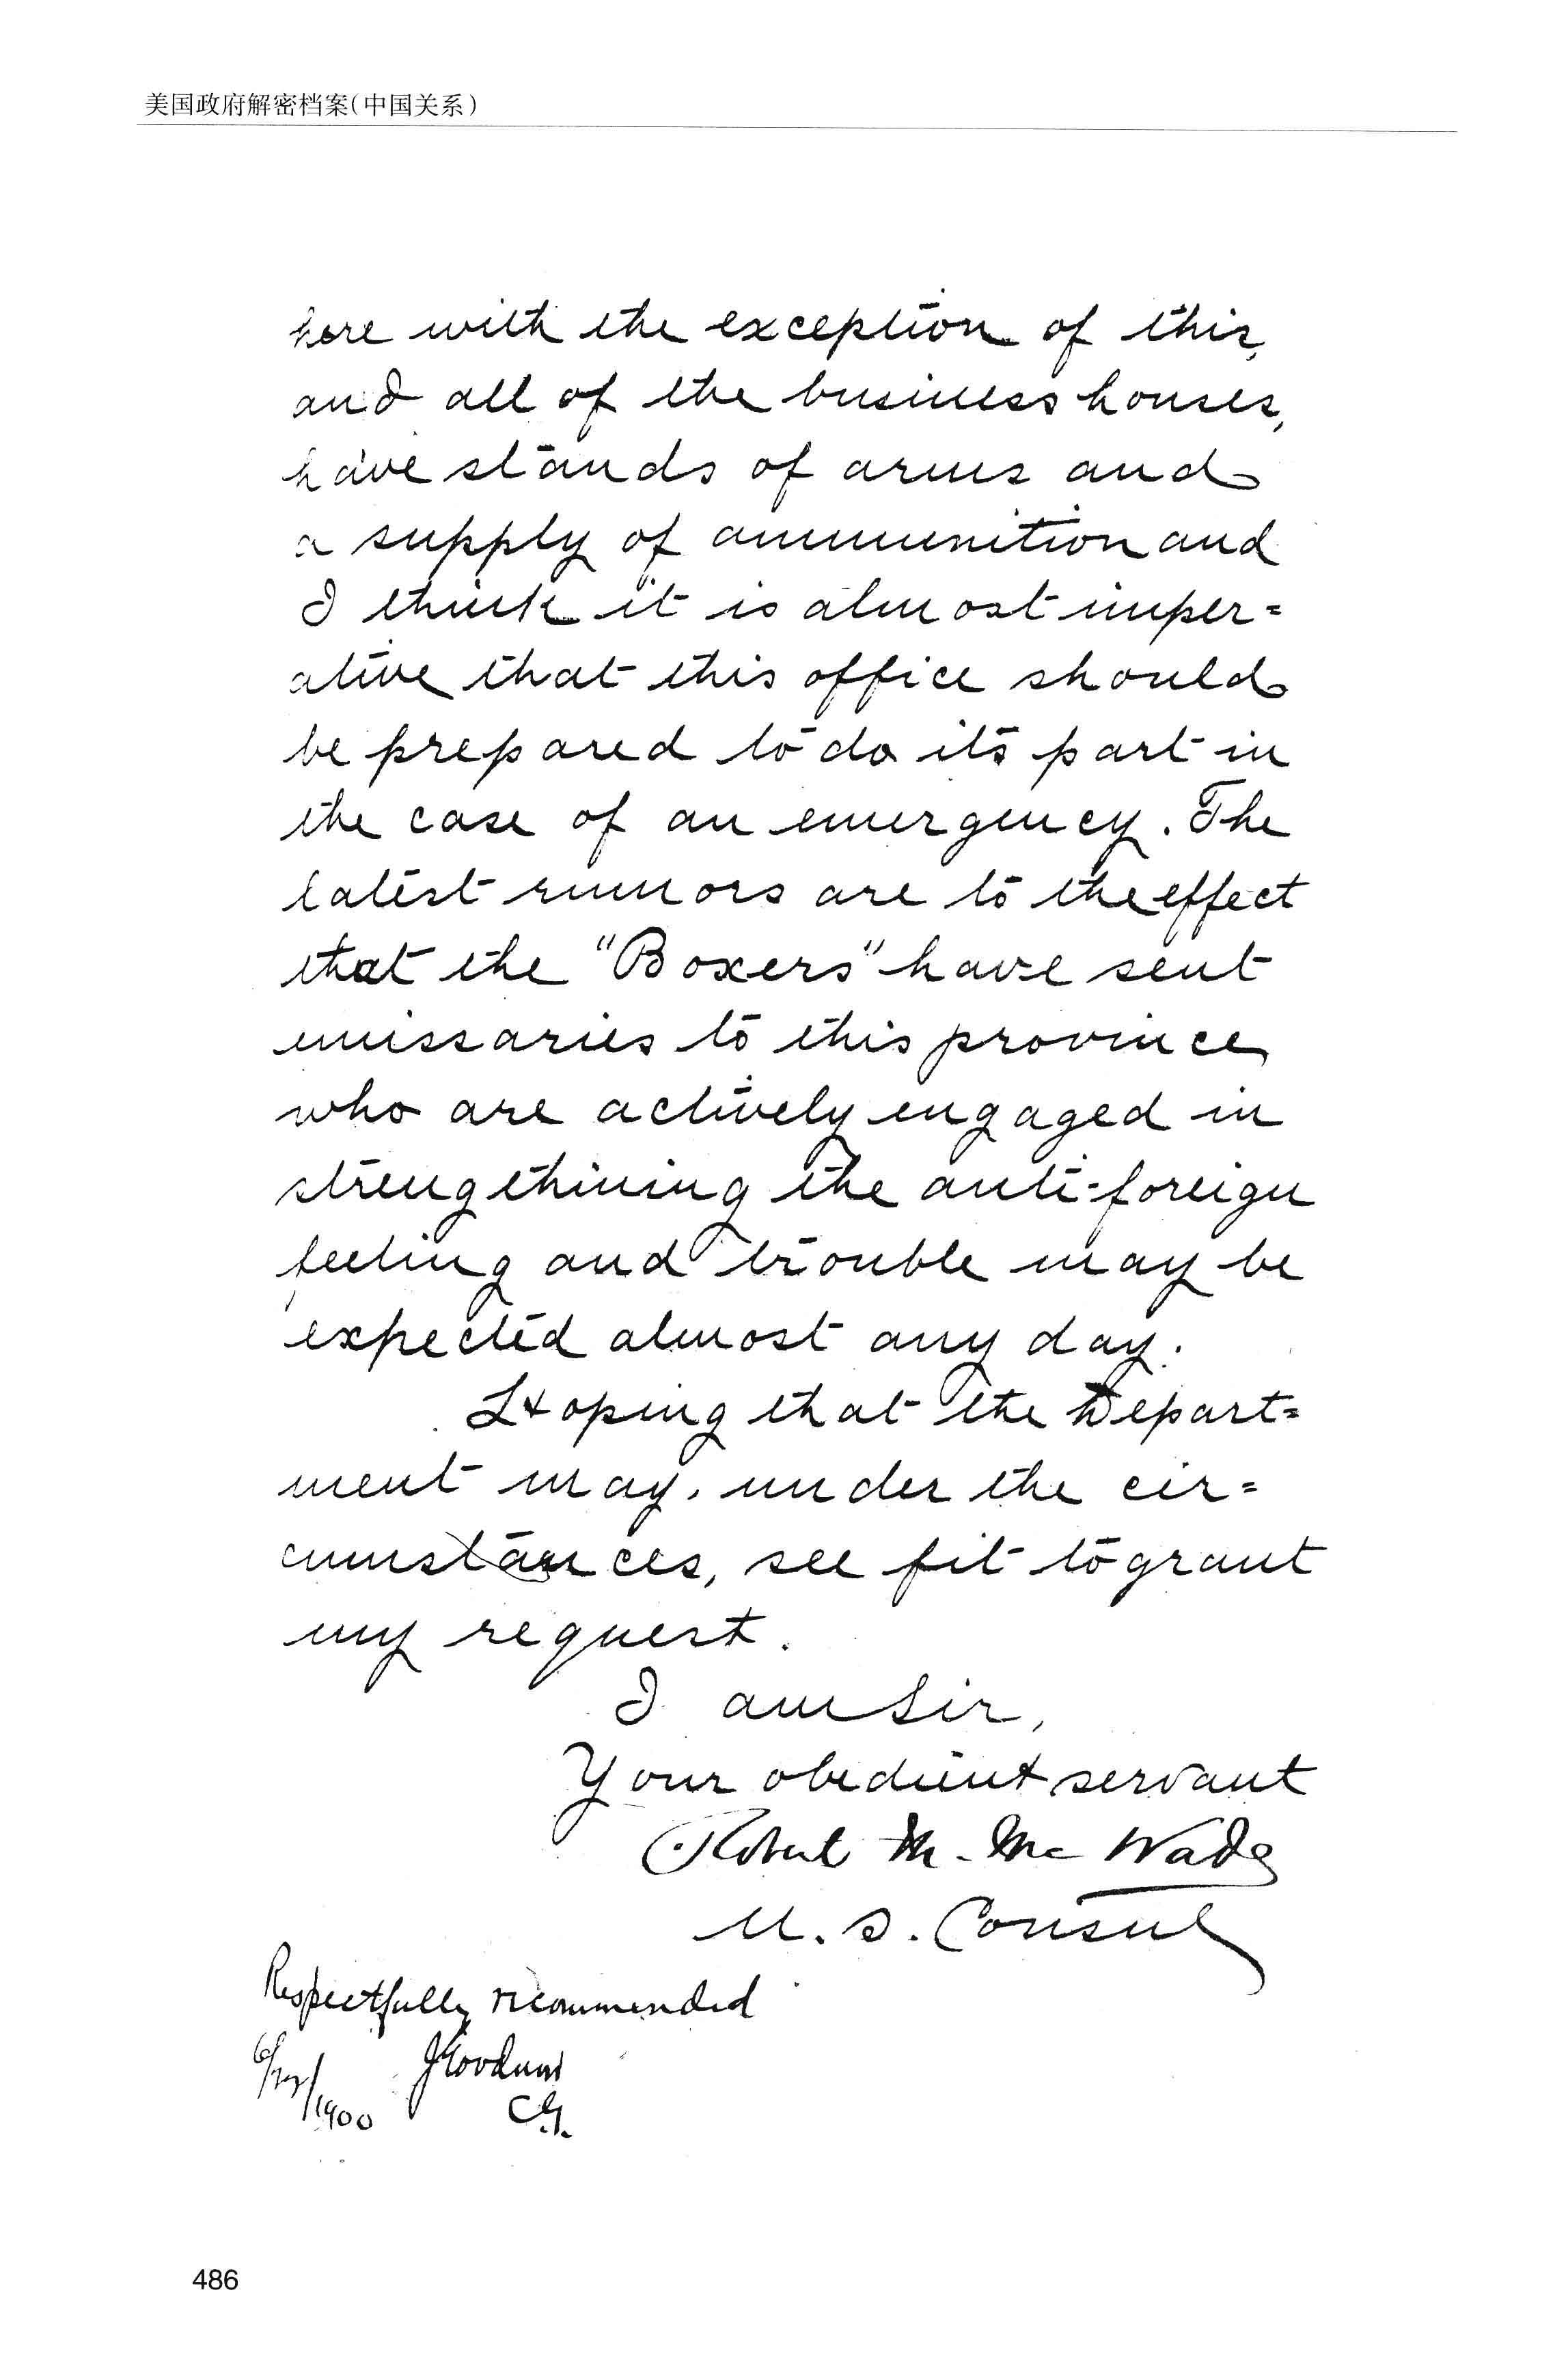 美国政府解密档案(中国关系)
here with the exception of this,
and all of the business houses,
have stands of arms and
a supply of ammunition and
I think it is almost imper=
ative that this office should
be prepared to do its part in
the case of an emergency. The
latest rumors are to the effect
that the "Boxers" have sent
emissaries to this province
who are actively engaged in
strengthining the anti-foreign
feeling and trouble may be
expected almost any day.
Hoping that the Depart=
ment may, under the cir=
cumstances, see fit to grant
my request.
I am Sir,
Your obedient servant
Robert M. McWade
U. S. Consul
Respectfully recommended
JGoodnow
C.G.
1900
486